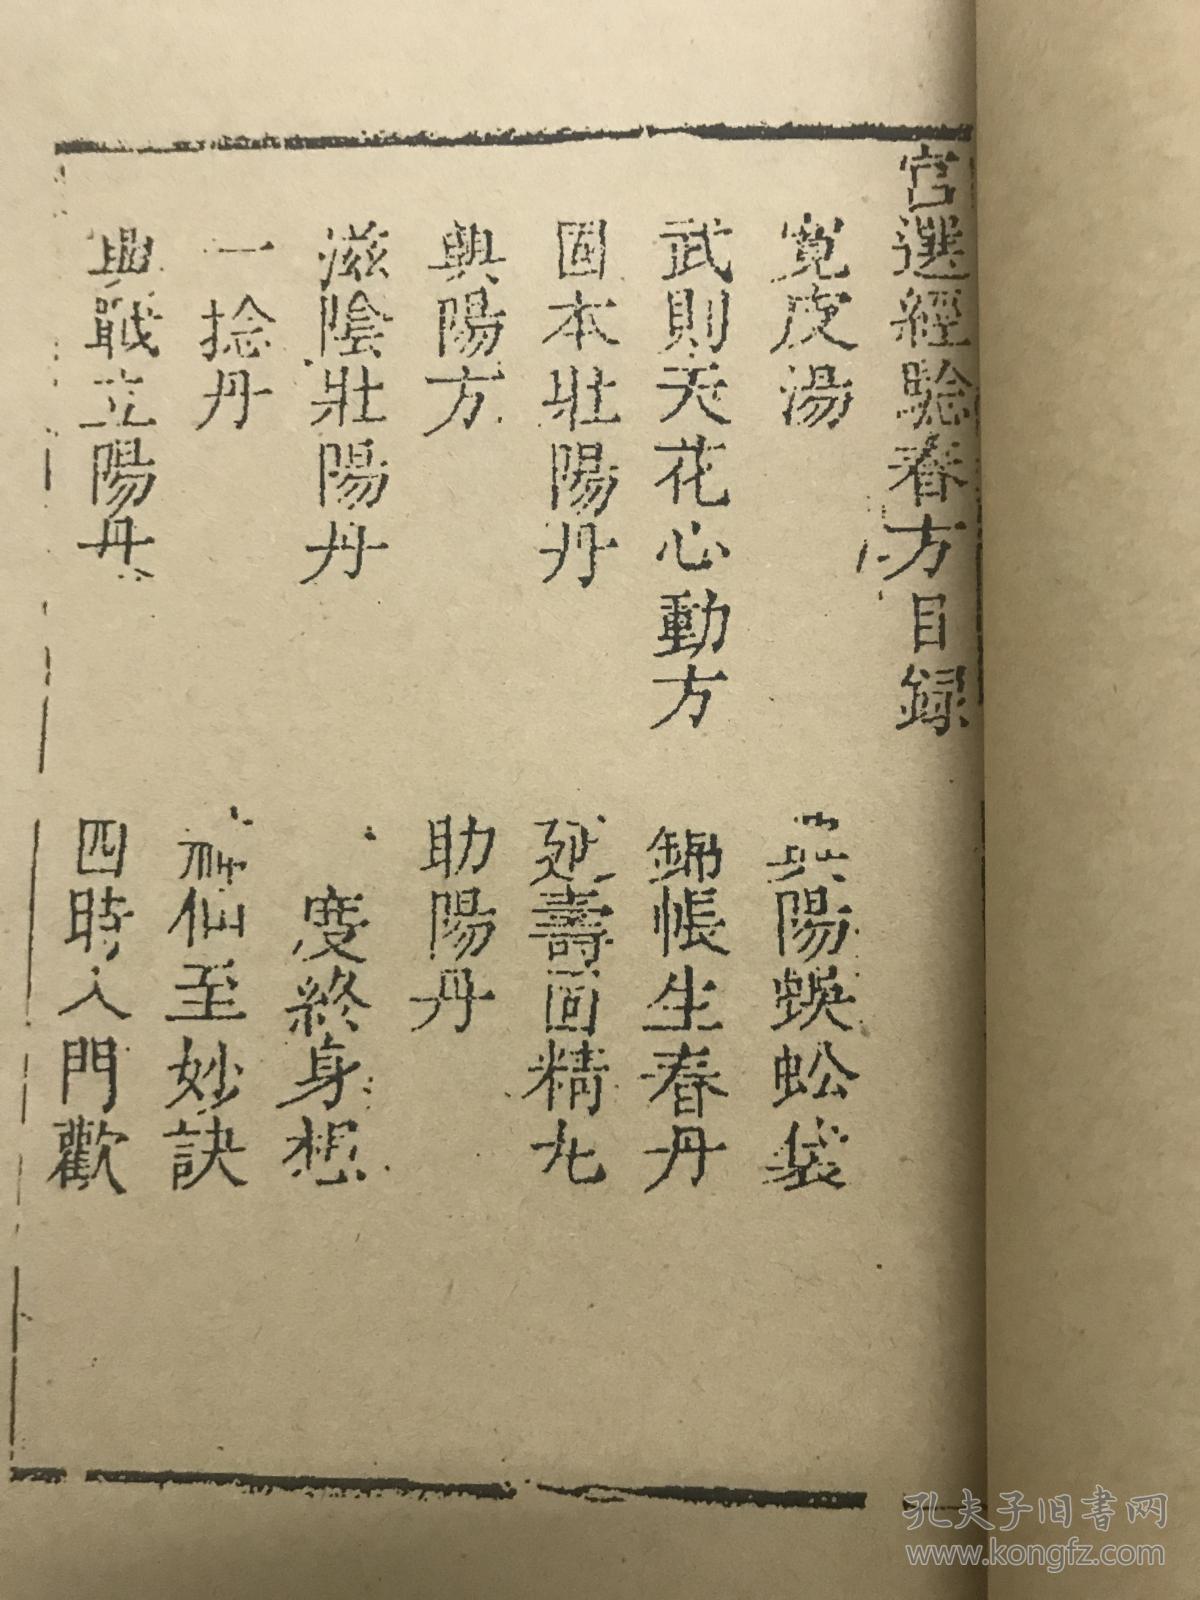 宫選經驗春方目録
寛皮湯
興陽蜈蚣袋
武則天花心動方
錦帳生春丹
固本壯陽丹
延壽固精丸
興陽方
助陽丹
滋陰壯陽丹
度終身想
一捻丹
神仙至妙訣
興戰立陽丹
四時入門歡
孔夫子旧书网
www.kongfz.com